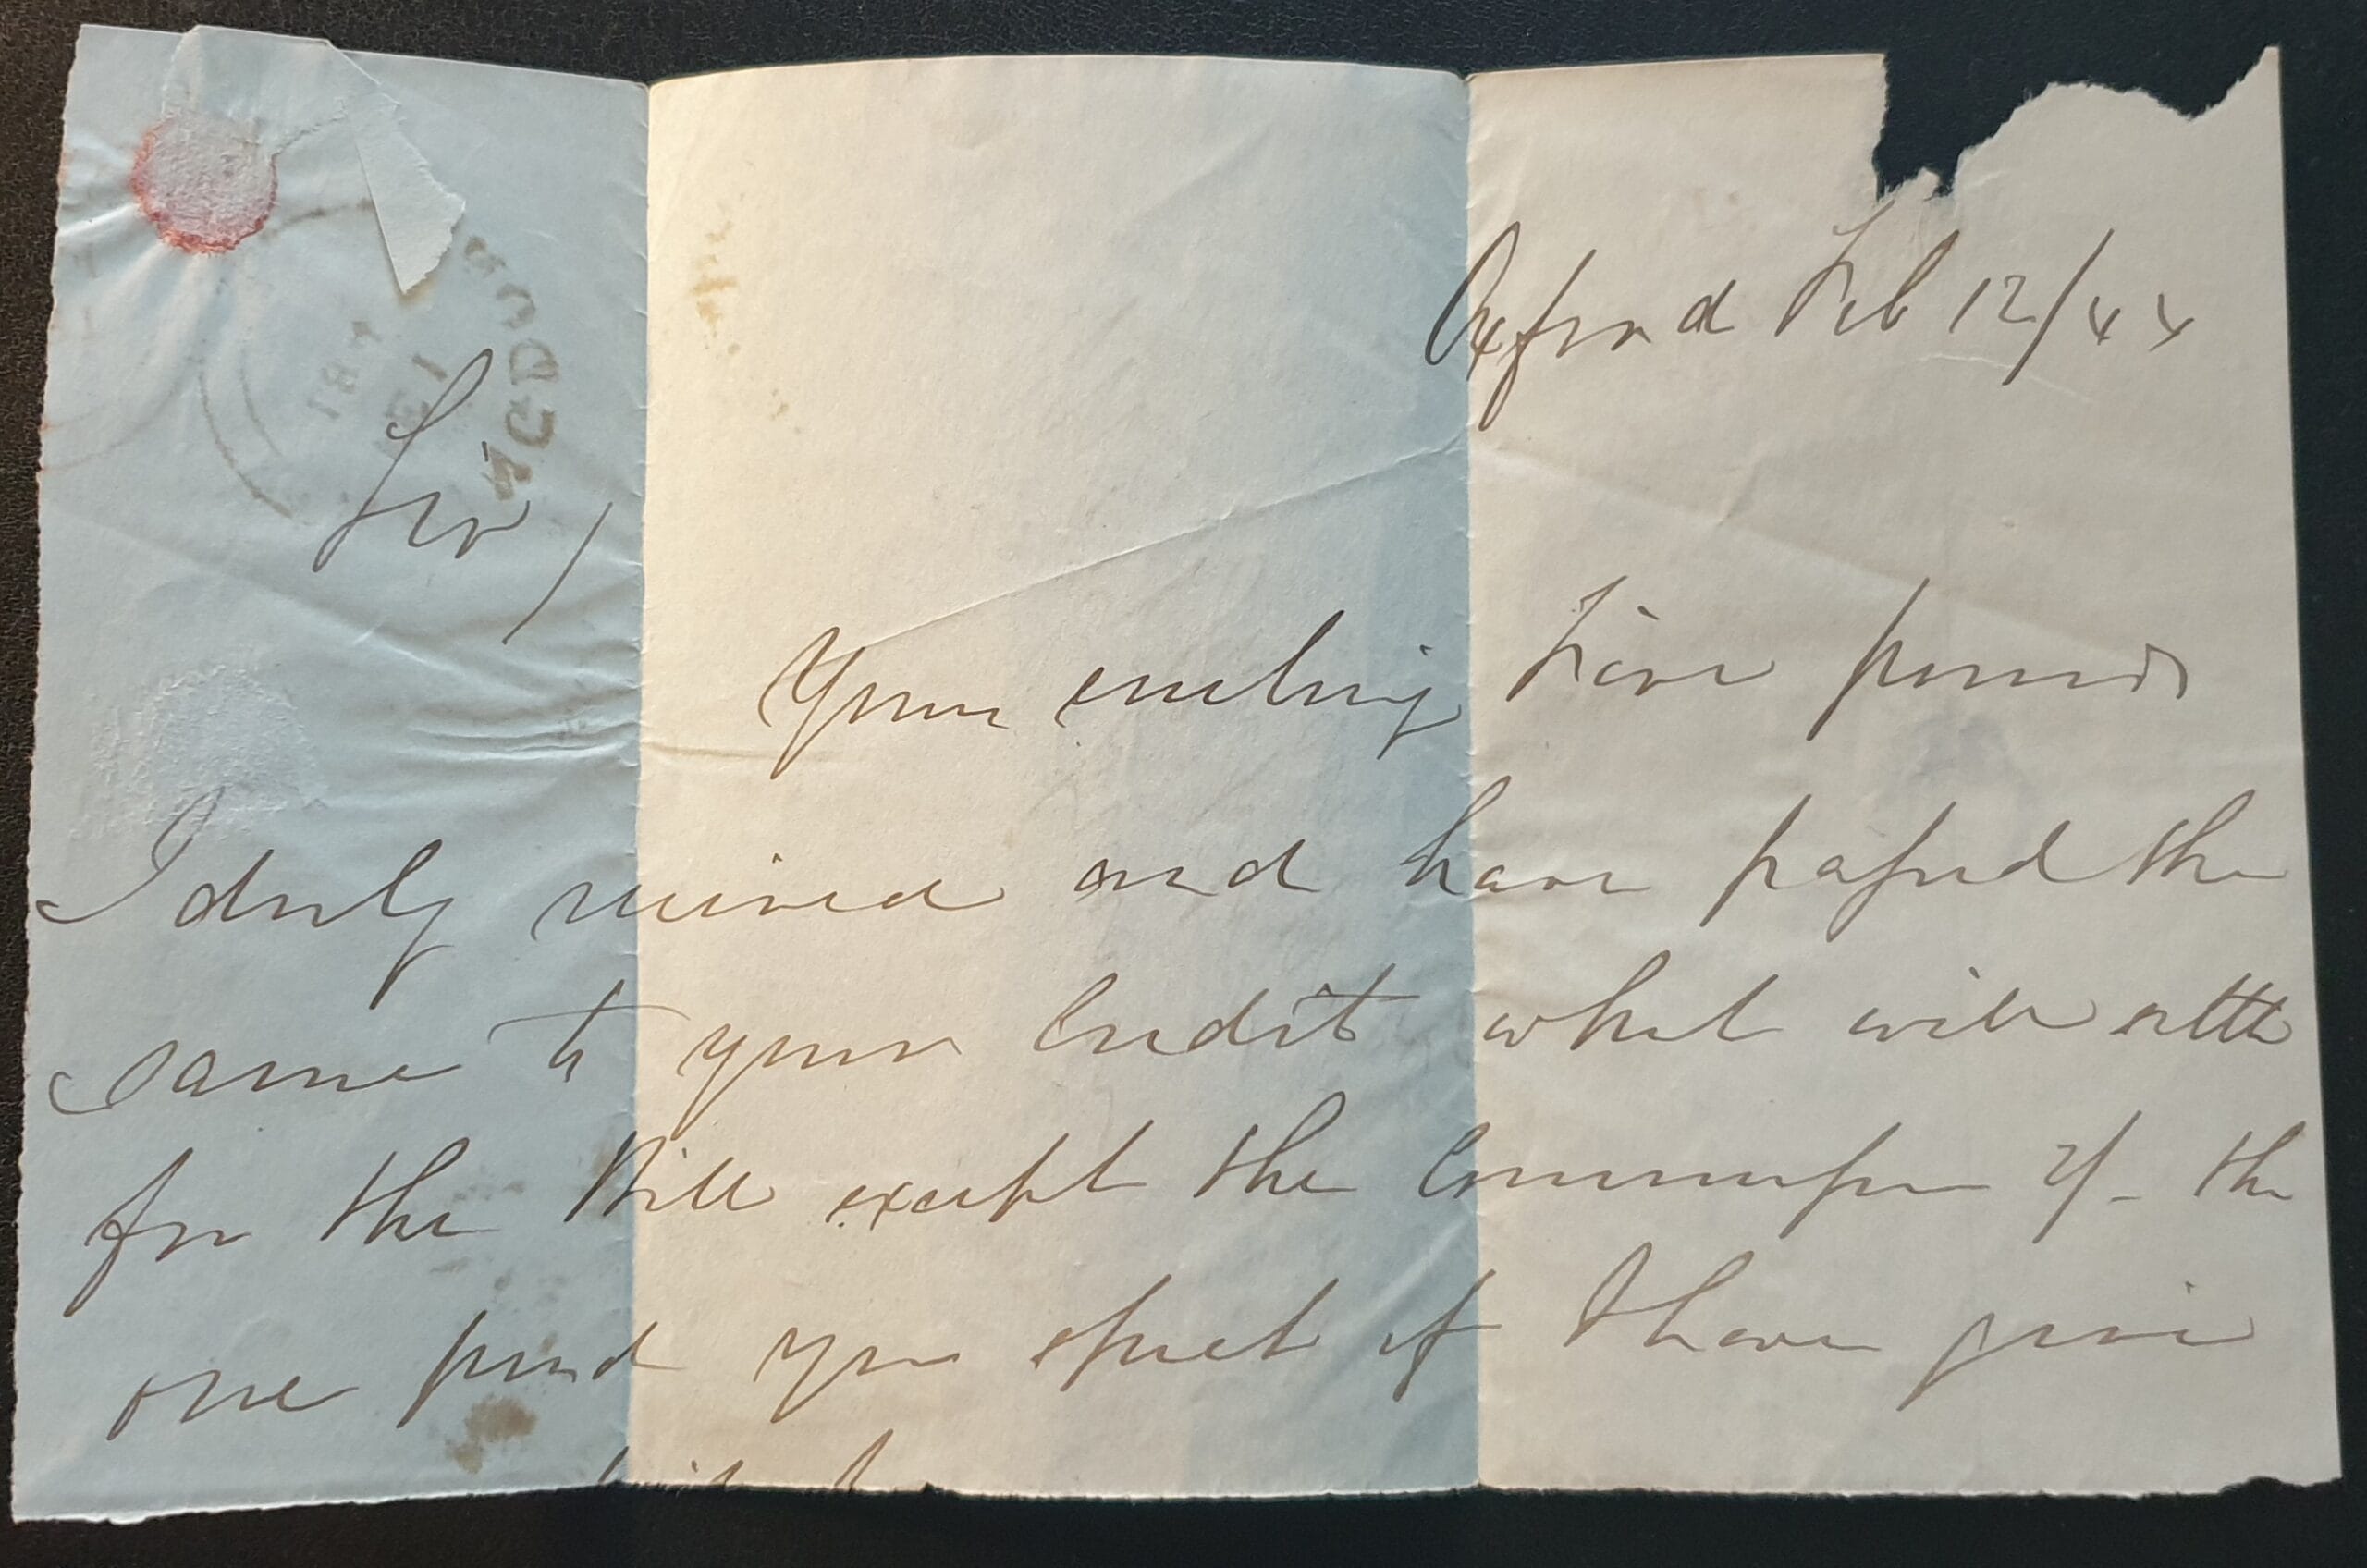 Oxford Feb 12/44
Sir/
Yours enclosing Five pounds
I duly received and have passed the
same to your Credit what will settle
for the Bill except the Commission 2/- the
one pound you if I have